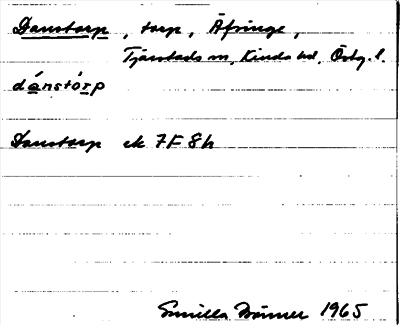 Danstorp, torp, Äfringe,
Tjärstads sn, Kinda hd, Östg. l.
dánstòrp
Danstorp ek 7F 8h
Gunilla 1965